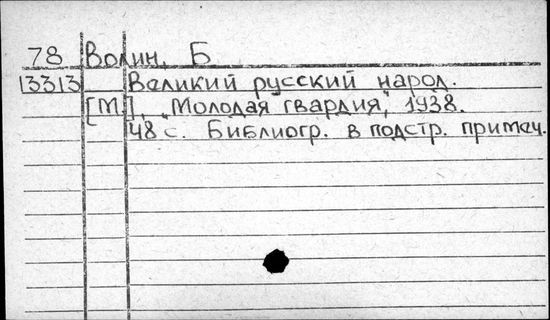 78 Волин, Б
13313 Великий русский народ.
[М.], „Молодая гвардия", 1938.
48 с. Библиогр. в подстр. примеч.